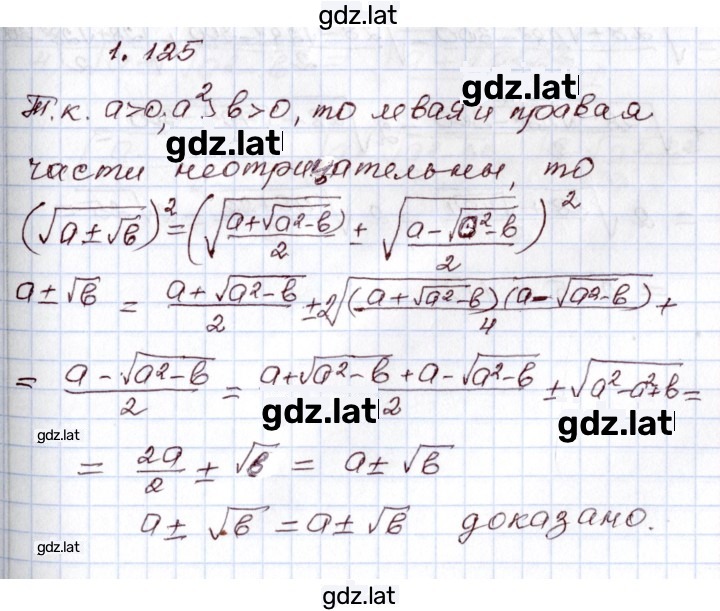 gdz.lat
1. 125
gdz.lat
Т.к. a>0; a² > b>0, то левая и правая
gdz.lat
части неотрицательны, то
(√(a±√b))² = (√((a+√(a²-b))/2) ± √((a-√(a²-b))/2))²
a±√b = (a+√(a²-b))/2 ± 2√((a+√(a²-b))(a-√(a²-b))/4) +
= (a-√(a²-b))/2 = (a+√(a²-b)+a-√(a²-b))/2 ± √(a²-a²+b) =
gdz.lat
gdz.lat
gdz.lat
= 2a/2 ± √b = a±√b
a±√b = a±√b доказано.
gdz.lat
gdz.lat